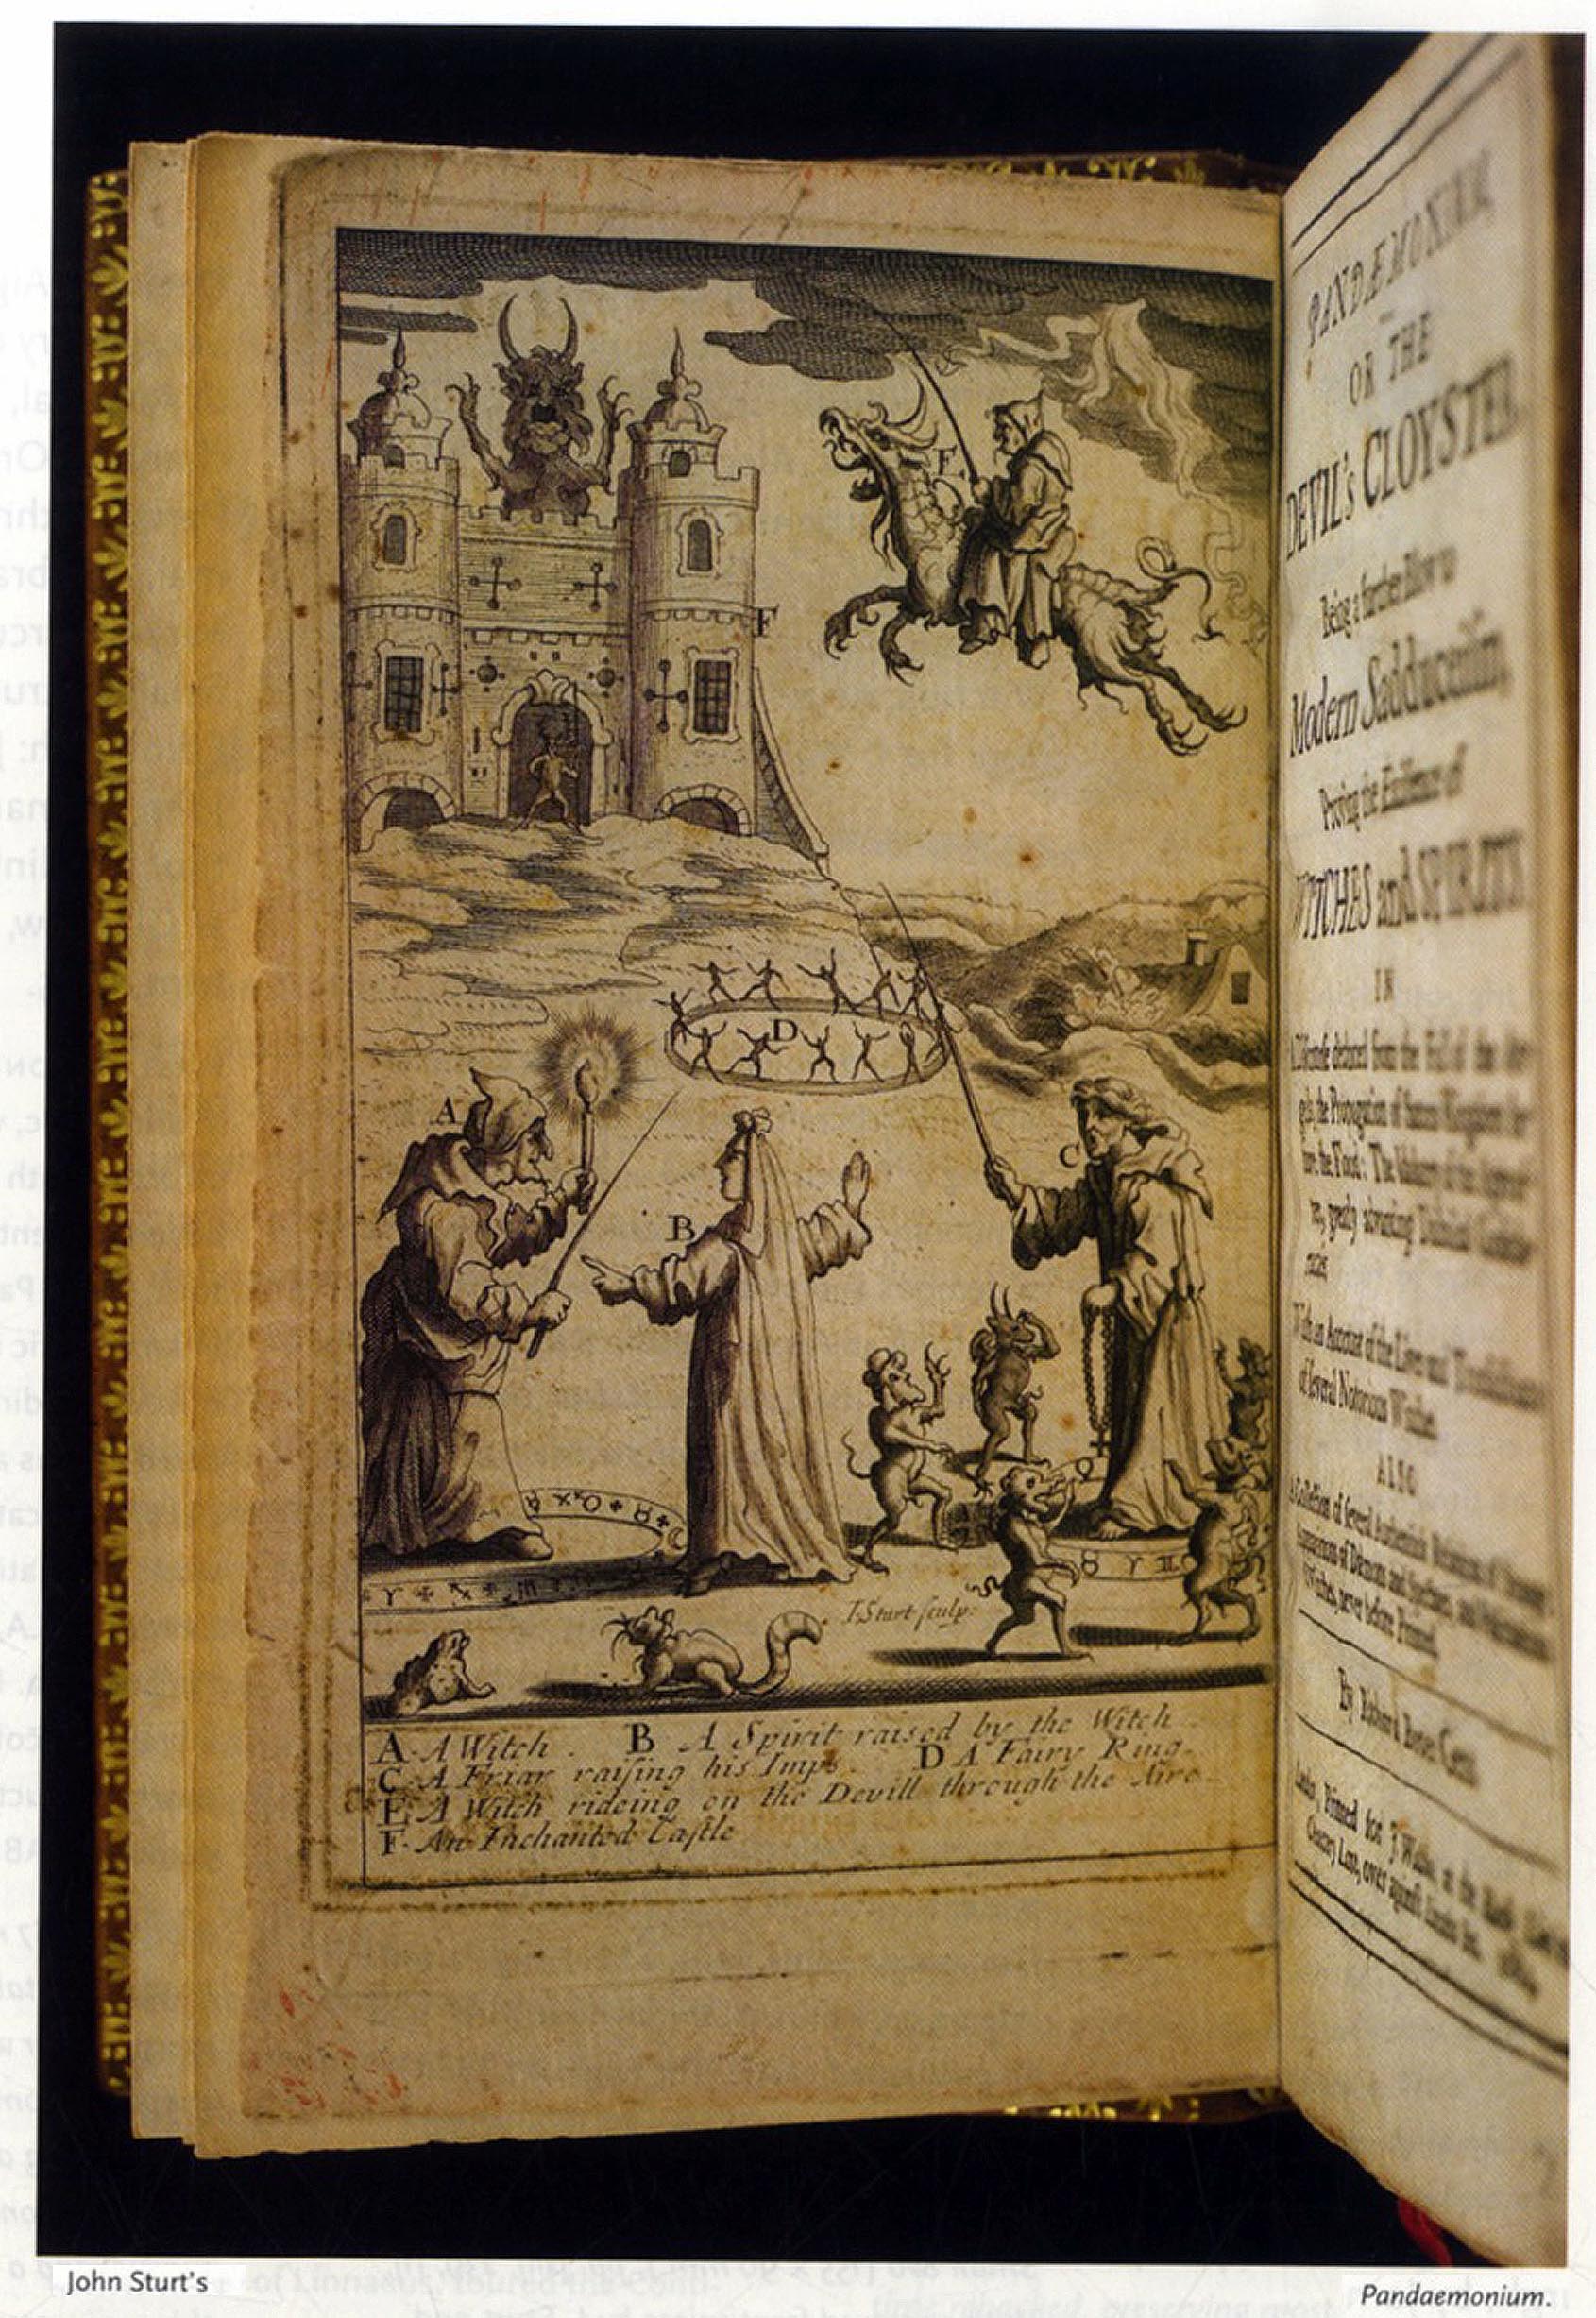 F
E
D
A
B
C
I. Sturt sculp:
A. A Witch. B A Spirit raised by the Witch
C. A Friar raising his Imps. D A Fairy Ring.
E. A Witch rideing on the Devill through the Aire
F. An Inchanted Castle
PANDÆMONIUM,
OR THE
DEVIL's CLOYSTER
Being a further Blow to
Modern Sadduceism,
Proving the Existence of
WITCHES and SPIRITS
IN
A Discourse deduced from the Fall of the An-
gels, the Propagation of Satans Kingdom be-
fore the Flood: The Idolatry of the Ages
greatly advancing Diabolical
With an Account of the Lives and Transactions
of several Notorious Witches
ALSO
A Collection of several Authentick Relations of Strange
Apparitions of Dæmons and Spectres, and
Witches, never before Printed.
By Richard Bovet Gent.
London, Printed for J. Walthoe, at the Black
Chancery Lane, over against Lincolns Inn.
John Sturt's
Pandaemonium.